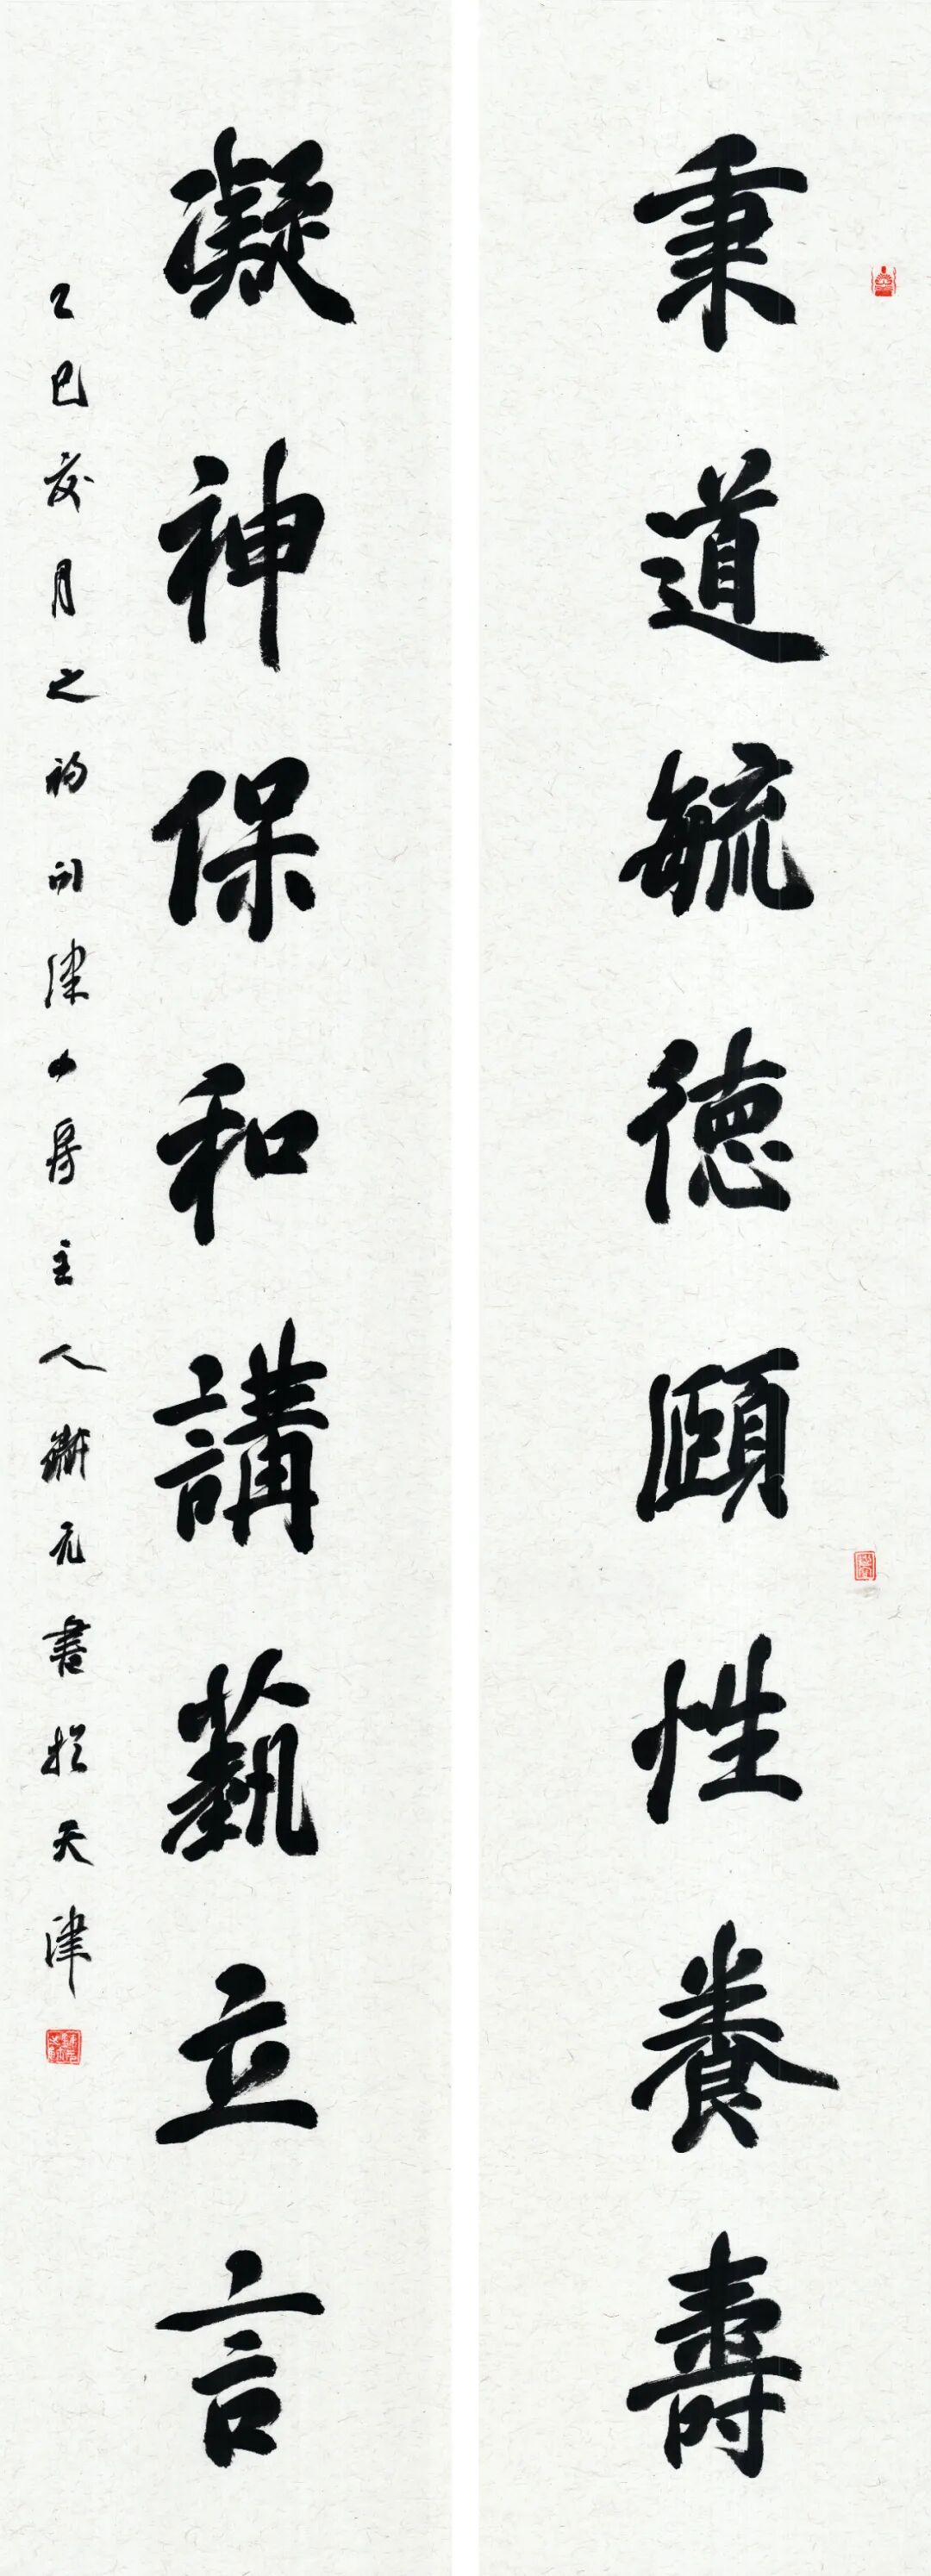 秉道毓德頤性養壽
凝神保和講藝立言
乙巳亥月之初旬津小房主人衡元書於天津